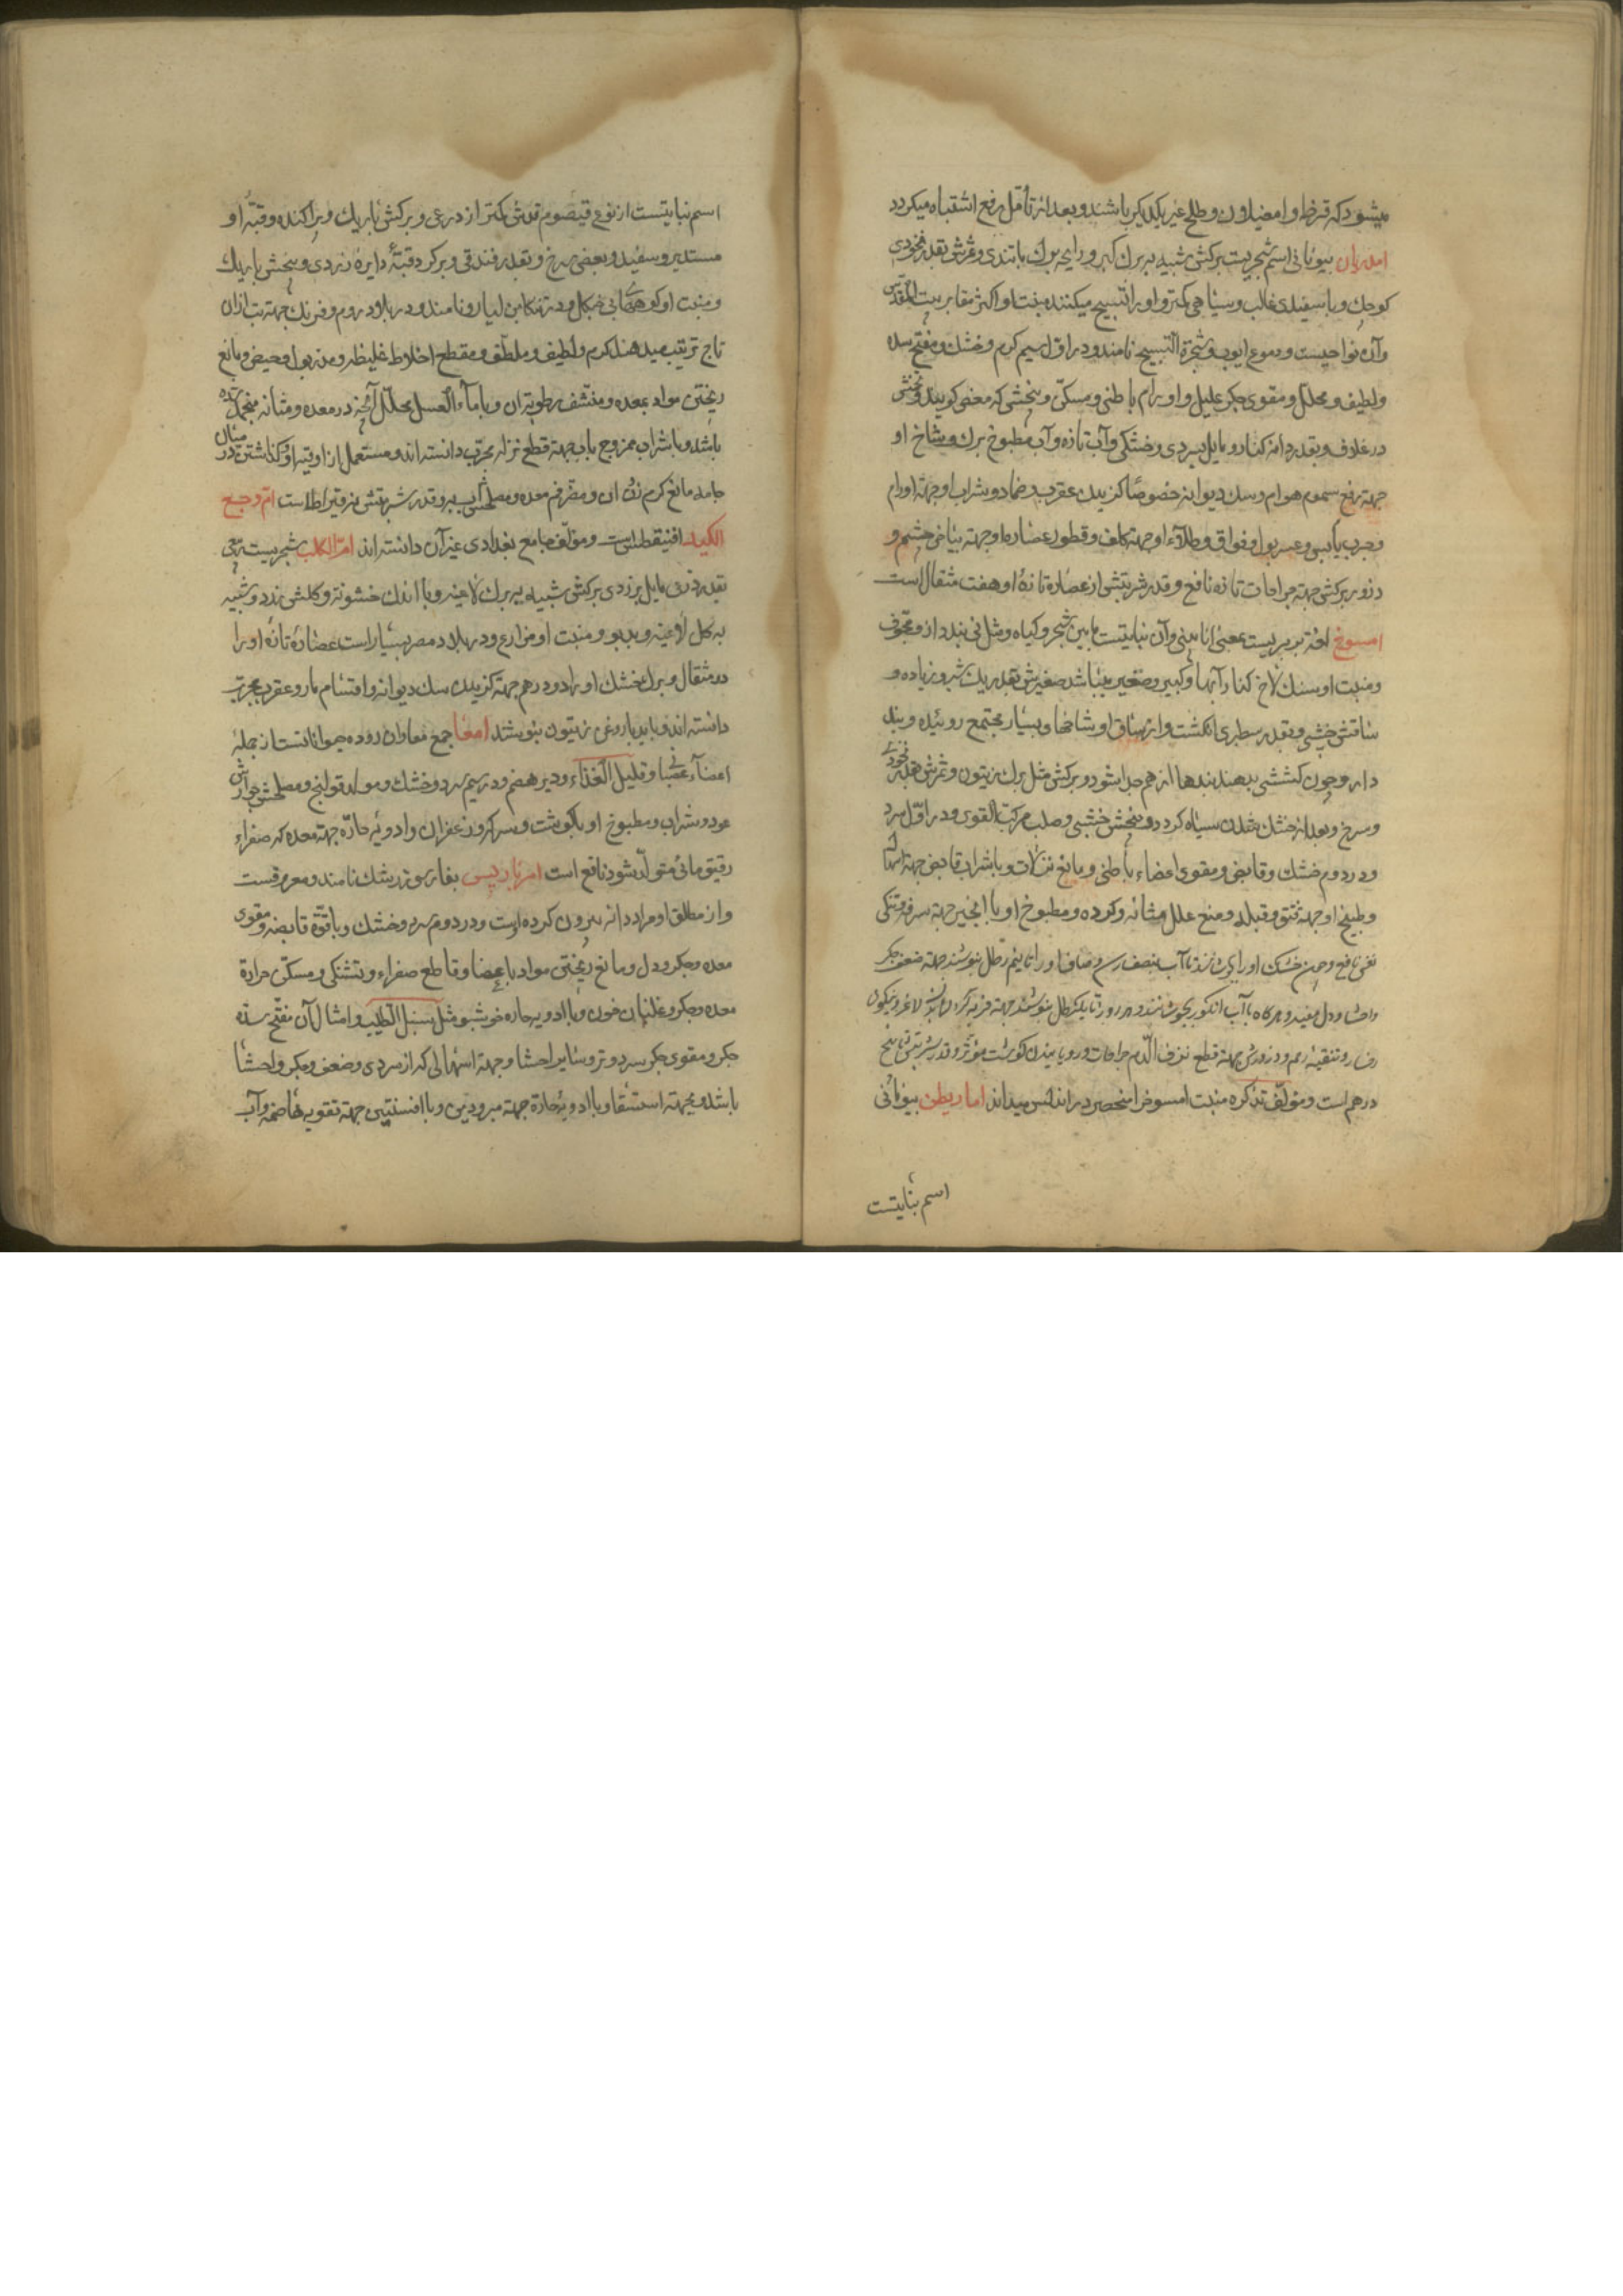 میشود که قرظ و امغیلان و طلح غیر یکدیکر باشند و بعد از تأمل رفع اشتباه میکردد
امدریان بیونانی اسم شجریست برکش شبیه به برک کبر و رایحه برک با تندی و ثمرش بقدر نخودی
کوچک و با سفیدی غالب و سیاهی کمتر و او را تسبیح میکنند منبت او اکثر مقابر بیت المقدس
و آن نواحیست و دموع ایوب و شجرة التسبیح نامند و در اول سیم کرم و خشک و مفتح سده
و لطیف و محلل و مقوی جکر علیل و اورام باطنی و مسکن و بخشی که مغص کویند و
در غلاف و بقدر دانه کنار و مایل بسردی و خشکی و آب تازه و آب مطبوخ برک و شاخ او
جهة رفع سموم هوام و سک دیوانه خصوصا کزیدن عقرب و ضماد و بشراب او جهة اورام
و جرب یابس و عسر بول و فواق و طلاء او جهة کلف و قطور عصاره او جهة بیاض چشم و
ذرور برکش جهة جراحات تازه نافع و قدر شربتش از عصاره تازه او هفت مثقال است
امسوخ لغة بربریست بمعنی انابیبی و آن نباتیست مابین شجر و کیاه و مثل نی بنددار و مجوف
و منبت او سنک لاخ کنار آبها و کبیر و صغیر میباشد صغیرش بقدر یک شبر و زیاده و
ساقش خشبی و بقدر سطبری انکشت و از ساق او شاخها و بسیار مجتمع روئیده و بند
دار و چون کششی بدهند بندها از هم جدا شود و برکش مثل برک زیتون و ثمرش بقدر نخودی
و سرخ و بعد از خشک شدن سیاه کردد و بیخش خشبی و صلب مرکب القوی و در اول سرد
و در دوم خشک و قابض و مقوی اعضاء باطنی و مانع نزلات و با شراب قابض جهة اسهال
و طبیخ او جهة فتق و قیله و منع علل مثانه و کرده و مطبوخ او با انجیر جهة سرفه و تنکی
نفس نافع و چون خشک او را بجوشانند تا آب بنصف رسد و صاف او را تا نیم رطل بنوشند جهة ضعف جکر
و احشا و دل مفید و هرکاه با آب انکور بجوشانند و هر روز تا یکرطل بنوشند جهة فربه کردن لاغر و نیکوئی
رخسار و تنقیه رحم و ذرورش جهة قطع نزف الدم جراحات و رویانیدن کوشت مؤثر و قدر شربتش تا پنج
درهم است و مؤلف تذکره منبت امسوخ را منحصر در اندلس میداند اماریطن بیونانی
اسم نباتیست
اسم نباتیست از نوع قیصوم قدش کمتر از ذرعی و برکش باریک و پراکنده و قبه او
مستدیر و سفید و بعضی سرخ و بقدر فندقی و بر کرد قبه دایره زردی و بیخش باریک
و منبت او کوههای و در تنکابن نامند و در بلاد روم و فرنک جهة بت از آن
تاج ترتیب میدهند کرم و لطیف و ملطف و مقطع اخلاط غلیظه و مدر بول و حیض و مانع
ریختن مواد بمعده و منشف رطوبة آن و با ماء العسل محلل آنچه در معده و مثانه منجمد شده
باشد و با شراب ممزوج بآب جهة قطع نزله مجرب دانسته اند و مستعمل از او قبه او و کذاشتن در میان
جامه مانع کرم زدن آن و مضر فم معده و مصلحش و قدر شربتش نه قیراطست ام وجع
الکبد افنیقطس است و مؤلف جامع بغدادی غیر آن دانسته اند ام الکلب شجریست
بقدر ذرعی مایل بزردی برکش شبیه به برک لاعیه و با اندک خشونة و کلش زرد و شبیه
به کل لاعیه و بدبو و منبت او مزارع و در بلاد مصر بسیار است عصاره تازه او را
ده مثقال و برک خشک او را دو درهم جهة کزیدن سک دیوانه و اقسام مار و عقرب مجرب
دانسته اند و باید با روغن زیتون بنوشند امعا جمع معا و آن روده حیوانانست از جمله
اعضاء عصبی و قلیل الغذاء و دیر هضم و در سیم سرد و خشک و مولد قولنج و مصلحش جوارش
عود و شراب و مطبوخ او با کوشت و سرکه و زعفران و ادویه حاره جهة معده که صفراء
رقیق مائی متولد شود نافع است امرباریس بفارسی زرشک نامند و معروفست
و از مطلق او مراد دانه بیرون کرده است و در دوم سرد و خشک و با قوة قابضه و مقوی
معده و جکر و دل و مانع ریختن مواد باعضا و قاطع صفراء و تشنکی و مسکن حرارة
معده و جکر و غلیان خون و با ادویه حاره خوشبو مثل سنبل الطیب و امثال آن مفتح سده
جکر و مقوی جکر سرد و تر و سایر احشا و جهة اسهالی که از سردی و ضعف جکر و احشا
باشد و بجهة استسقا و با ادویه حارة جهة مبرودین و با افسنتین جهة تقویه هاضمه و آب